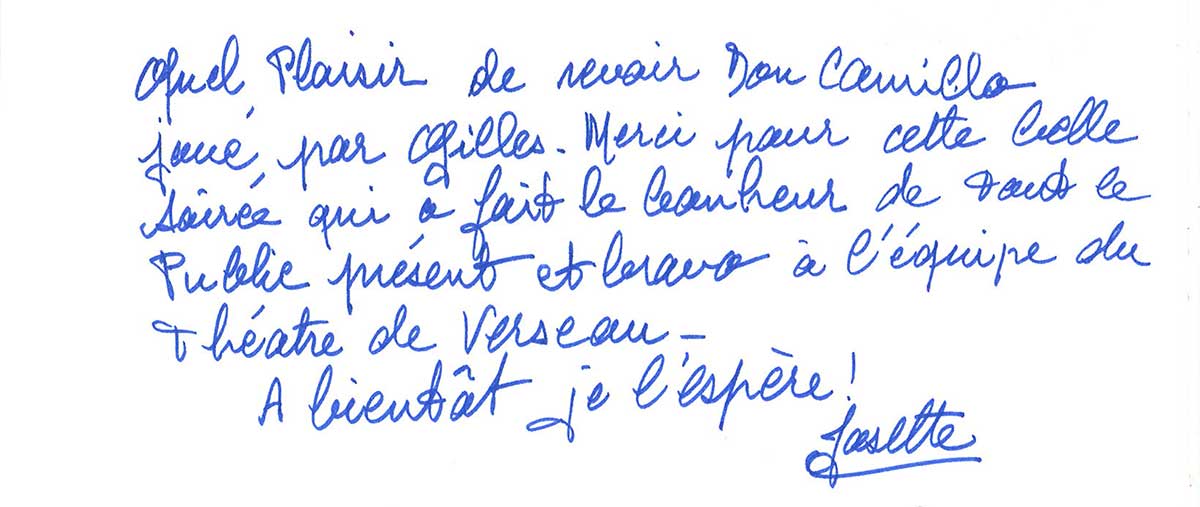 Quel Plaisir de revoir Don Camillo
joué par Gilles. Merci pour cette belle
soirée qui a fait le bonheur de tout le
Public présent et bravo à l'équipe du
théatre de Verseau –
A bientôt je l'espère !
Josette